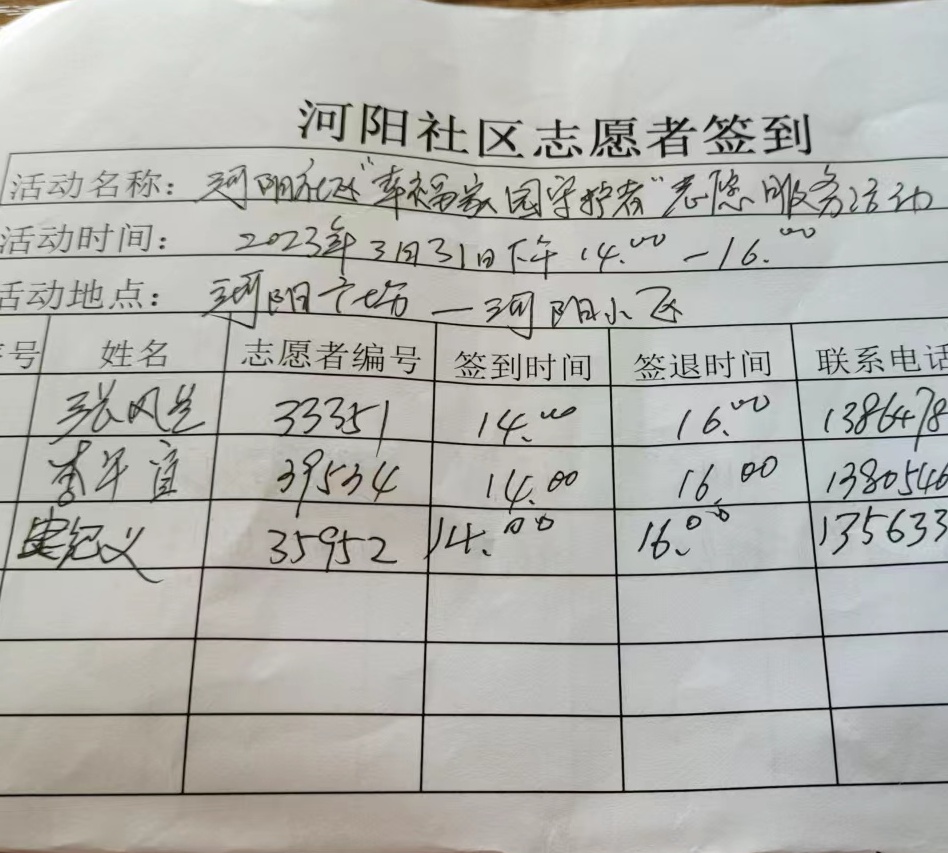 河阳社区志愿者签到
活动名称：河阳社区"幸福家园守护者"志愿服务活动
活动时间：2023年3月31日下午14.00－16.00
活动地点：河阳广场—河阳小区
序号 姓名 志愿者编号 签到时间 签退时间 联系电话
张风 33351 14.00 16.00 1386478
李 宜 39534 14.00 16.00 1380546
纪义 35952 14.00 16.00 135633